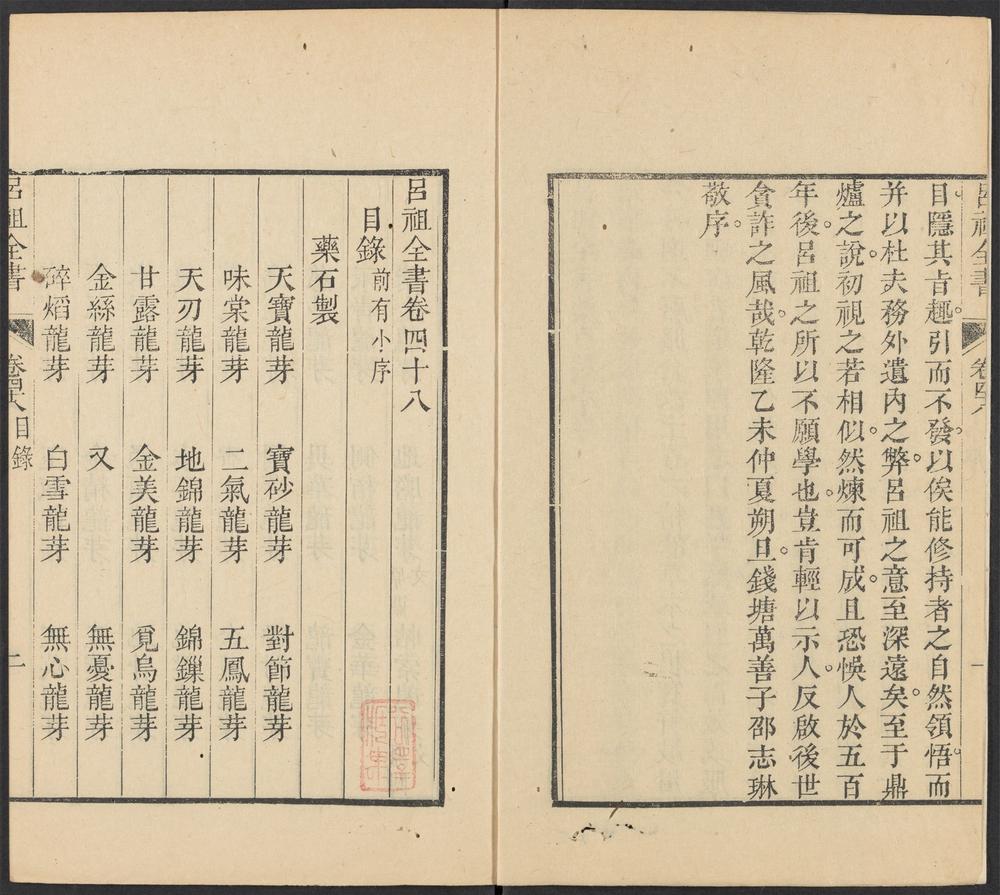 目隱其㫖趣引而不發以俟能修持者之自然領悟而
并以杜夫務外遺內之弊呂祖之意至深遠矣至于鼎
爐之說初視之若相似然煉而可成且恐悞人於五百
年後呂祖之所以不願學也豈肯輕以示人反啟後世
貪詐之風哉乾隆乙未仲夏朔旦錢塘萬善子邵志琳
敬序
呂祖全書卷四十八
目錄 前有小序
藥石製
天寶龍芽 寶砂龍芽 對節龍芽
味棠龍芽 二氣龍芽 五鳳龍芽
天刃龍芽 地錦龍芽 錦鏁龍芽
甘露龍芽 金美龍芽 覓烏龍芽
金絲龍芽 又 無憂龍芽
碎焰龍芽 白雪龍芽 無心龍芽
呂祖全書 卷四十八目錄 二